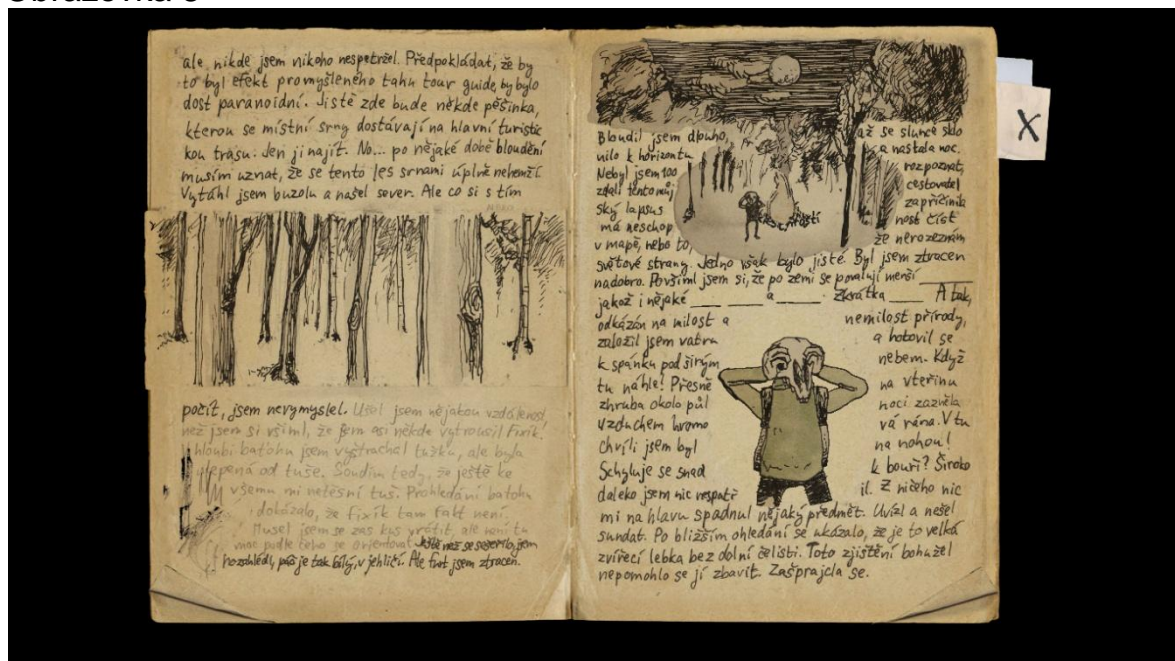 ale, nikde jsem nikoho nespetřel. Předpokládat, že by
to byl efekt promyšleného tahu tour guide, by bylo
dost paranoidní. Jistě zde bude někde pěšinka,
kterou se místní srny dostávají na hlavní turistic
kou trasu. Jen ji najít. No... po nějaké době bloudění
musím uznat, že se tento les srnami úplně nehemží.
Vytáhl jsem buzolu a našel sever. Ale co si s tím
počít, jsem nevymyslel. Ušel jsem nějakou vzdálenost
než jsem si všiml, že jsem asi někde vytrousil Fixík.
hloubi baťohu jsem vyštrachal tužku, ale byla
od tuše. Soudím tedy, že ještě ke
všemu mi netěsní tuš. Prohledání batohu
dokázalo, že fixík tam fakt není.
Musel jsem se zas kus vrátit, ale není tu
moc podle čeho se orientovat. Ještě než se setmělo, jsem
ho zahlédl, je tak bílý, v jehličí. Ale furt jsem ztracen.
X
Bloudil jsem dlouho, až se slunce sklo
nilo k horizontu a nastala noc.
Nebyl jsem 100 rozpoznat,
zdali tento můj cestovatel
ský lapsus zapříčinila
má neschop nost číst
v mapě, nebo to, že nerozeznám
světové strany. Jedno však bylo jisté. Byl jsem ztracen
nadobro. Povšiml jsem si, že po zemi se povalují menší ____
jakož i nějaké ____ ____ a ____ Zkrátka ____ A tak,
odkázán na milost a nemilost přírody,
založil jsem vatru a hotovil se
k spánku pod širým nebem. Když
tu náhle! Přesně na vteřinu
zhruba okolo půl noci zazněla
vzduchem hromo vá rána. V tu
chvíli jsem byl na nohou!
Schyluje se snad k bouři? Široko
daleko jsem nic nespatř il. Z ničeho nic
mi na hlavu spadnul nějaký předmět. Uvízl a nešel
sundat. Po bližším ohledání se ukázalo, že je to velká
zvířecí lebka bez dolní čelisti. Toto zjištění bohužel
nepomohlo se jí zbavit. Zašprajcla se.